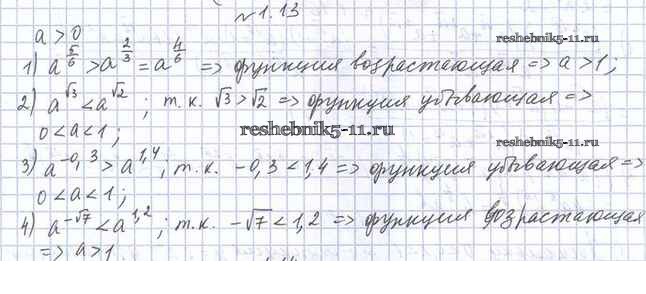 №1.13
a > 0
reshebnik5-11.ru
1) a^(5/6) > a^(2/3) = a^(4/6) => функция возрастающая => a > 1;
2) a^√3 < a^√2 ; т.к. √3 > √2 => функция убывающая =>
0 < a < 1;
reshebnik5-11.ru
3) a^-0,3 > a^1,4 ; т.к. -0,3 < 1,4 => функция убывающая =>
0 < a < 1;
4) a^-√7 < a^1,2 ; т.к. -√7 < 1,2 => функция возрастающая
=> a > 1
reshebnik5-11.ru